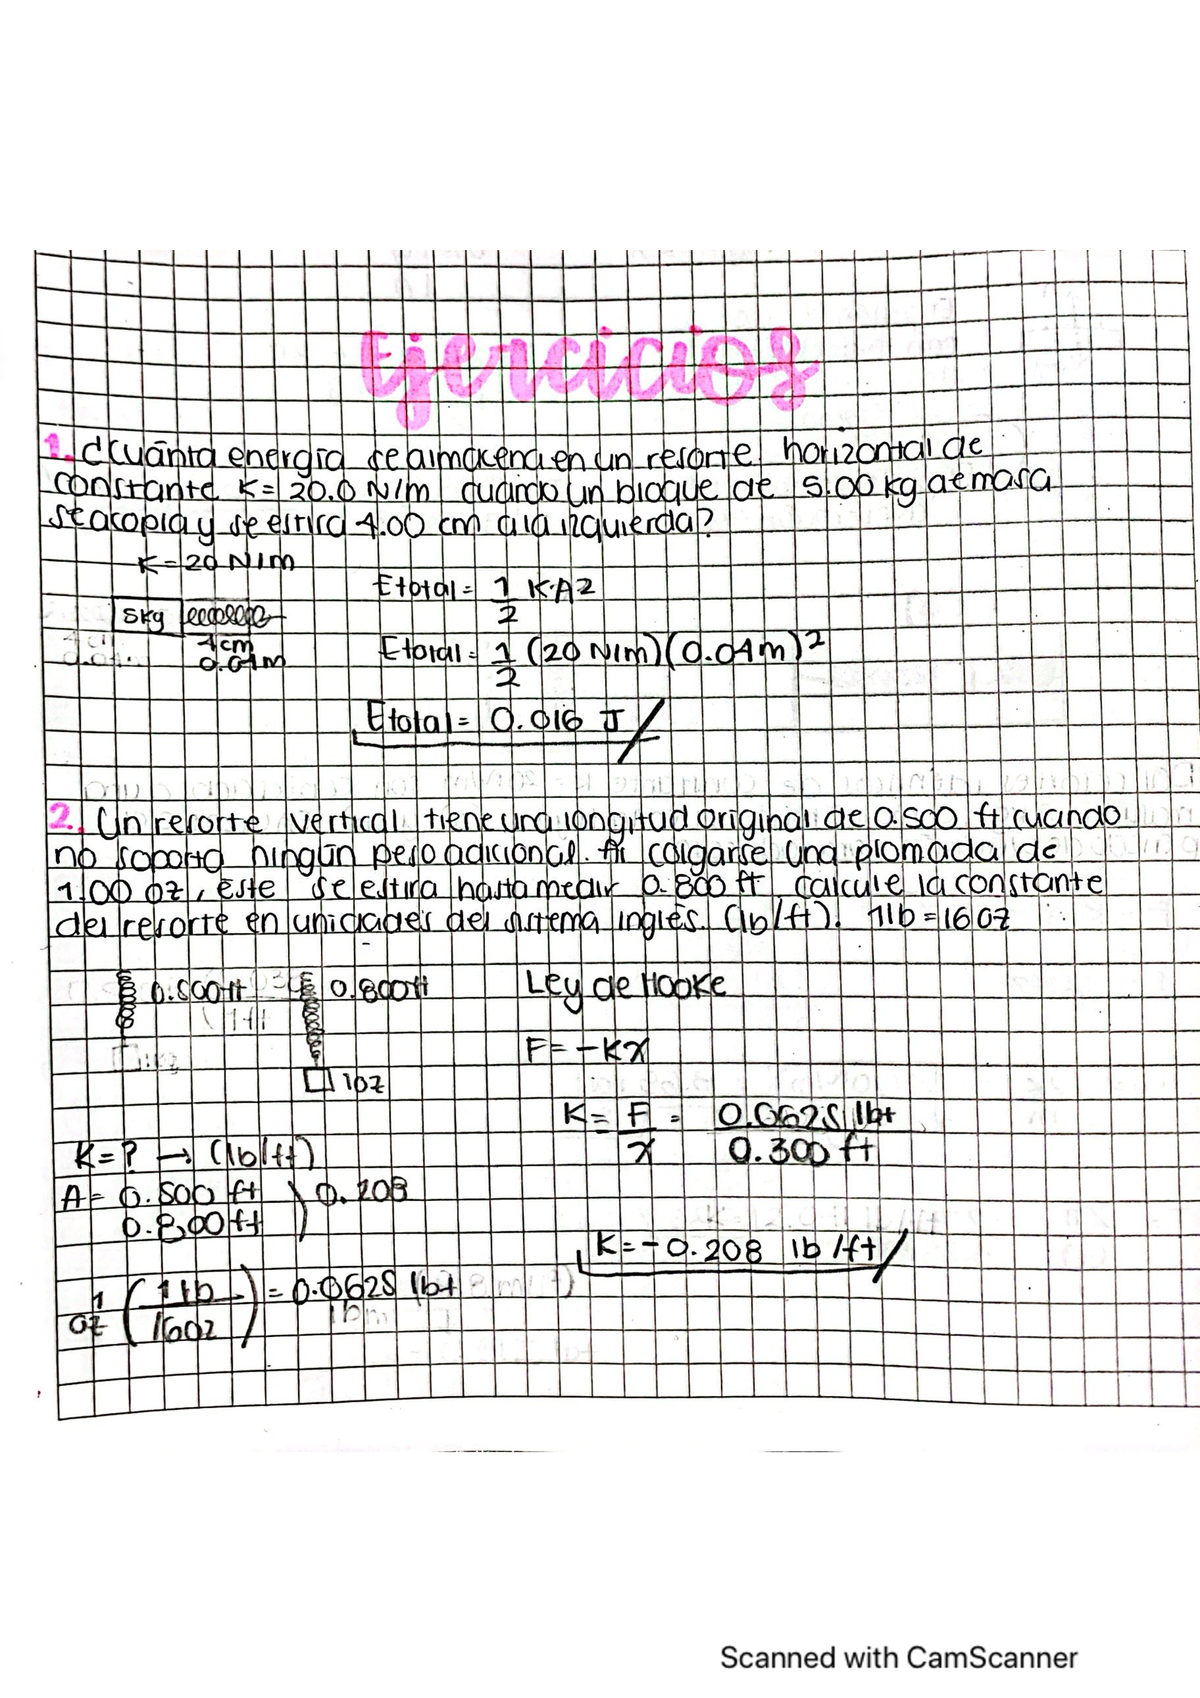 Ejercicios
1. ¿Cuánta energía se almacena en un resorte horizontal de
constante K=20.0 N/m cuando un bloque de 5.00 kg de masa
se acopla y se estira 4.00 cm a la izquierda?
K=20 N/m
Etotal = 1/2 K·A2
5kg
4cm
0.04m
Etotal = 1/2 (20 N/m)(0.04m)²
Etotal = 0.016 J
2. Un resorte vertical tiene una longitud original de 0.500 ft cuando
no soporta ningún peso adicional. Al colgarse una plomada de
1.00 oz, éste se estira hasta medir 0.800 ft calcule la constante
del resorte en unidades del sistema inglés. (lb/ft). 1lb=16oz
0.500ft 0.800ft Ley de Hooke
F=-Kx
1oz
K= F/x = 0.0625 lbt / 0.300 ft
K=? → (lb/ft)
A= 0.500 ft 0.208
0.800ft
K=-0.208 lb/ft
1 oz (1 lb / 16oz) = 0.0625 lbt
Scanned with CamScanner